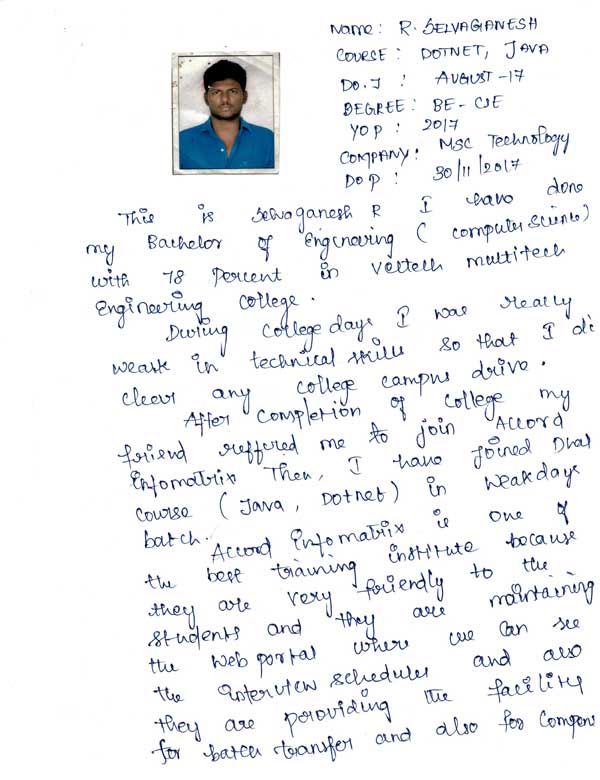 Name: R. SELVAGANESH
COURSE: DOTNET, JAVA
D.O.J : AUGUST-17
DEGREE: BE-CSE
YOP : 2017
COMPANY: MSC Technology
DOP : 30/11/2017
This is Selvaganesh R I have done
my Bachelor of Engineering (computer science)
with 78 Percent in Veltech multitech
Engineering college.
During college days I was really
weak in technical skills so that I di
clear any college campus drive.
After completion of college my
friend reffered me to join Accord
Infomatrix Then, I have joined Dual
course (Java, Dotnet) in weakdays
batch.
Accord Infomatrix is one of
the best training institute because
they are very friendly to the
students and they are maintaining
the web portal where we can see
the interview schedules and also
they are peroviding the facility
for batch transfer and also for Compen